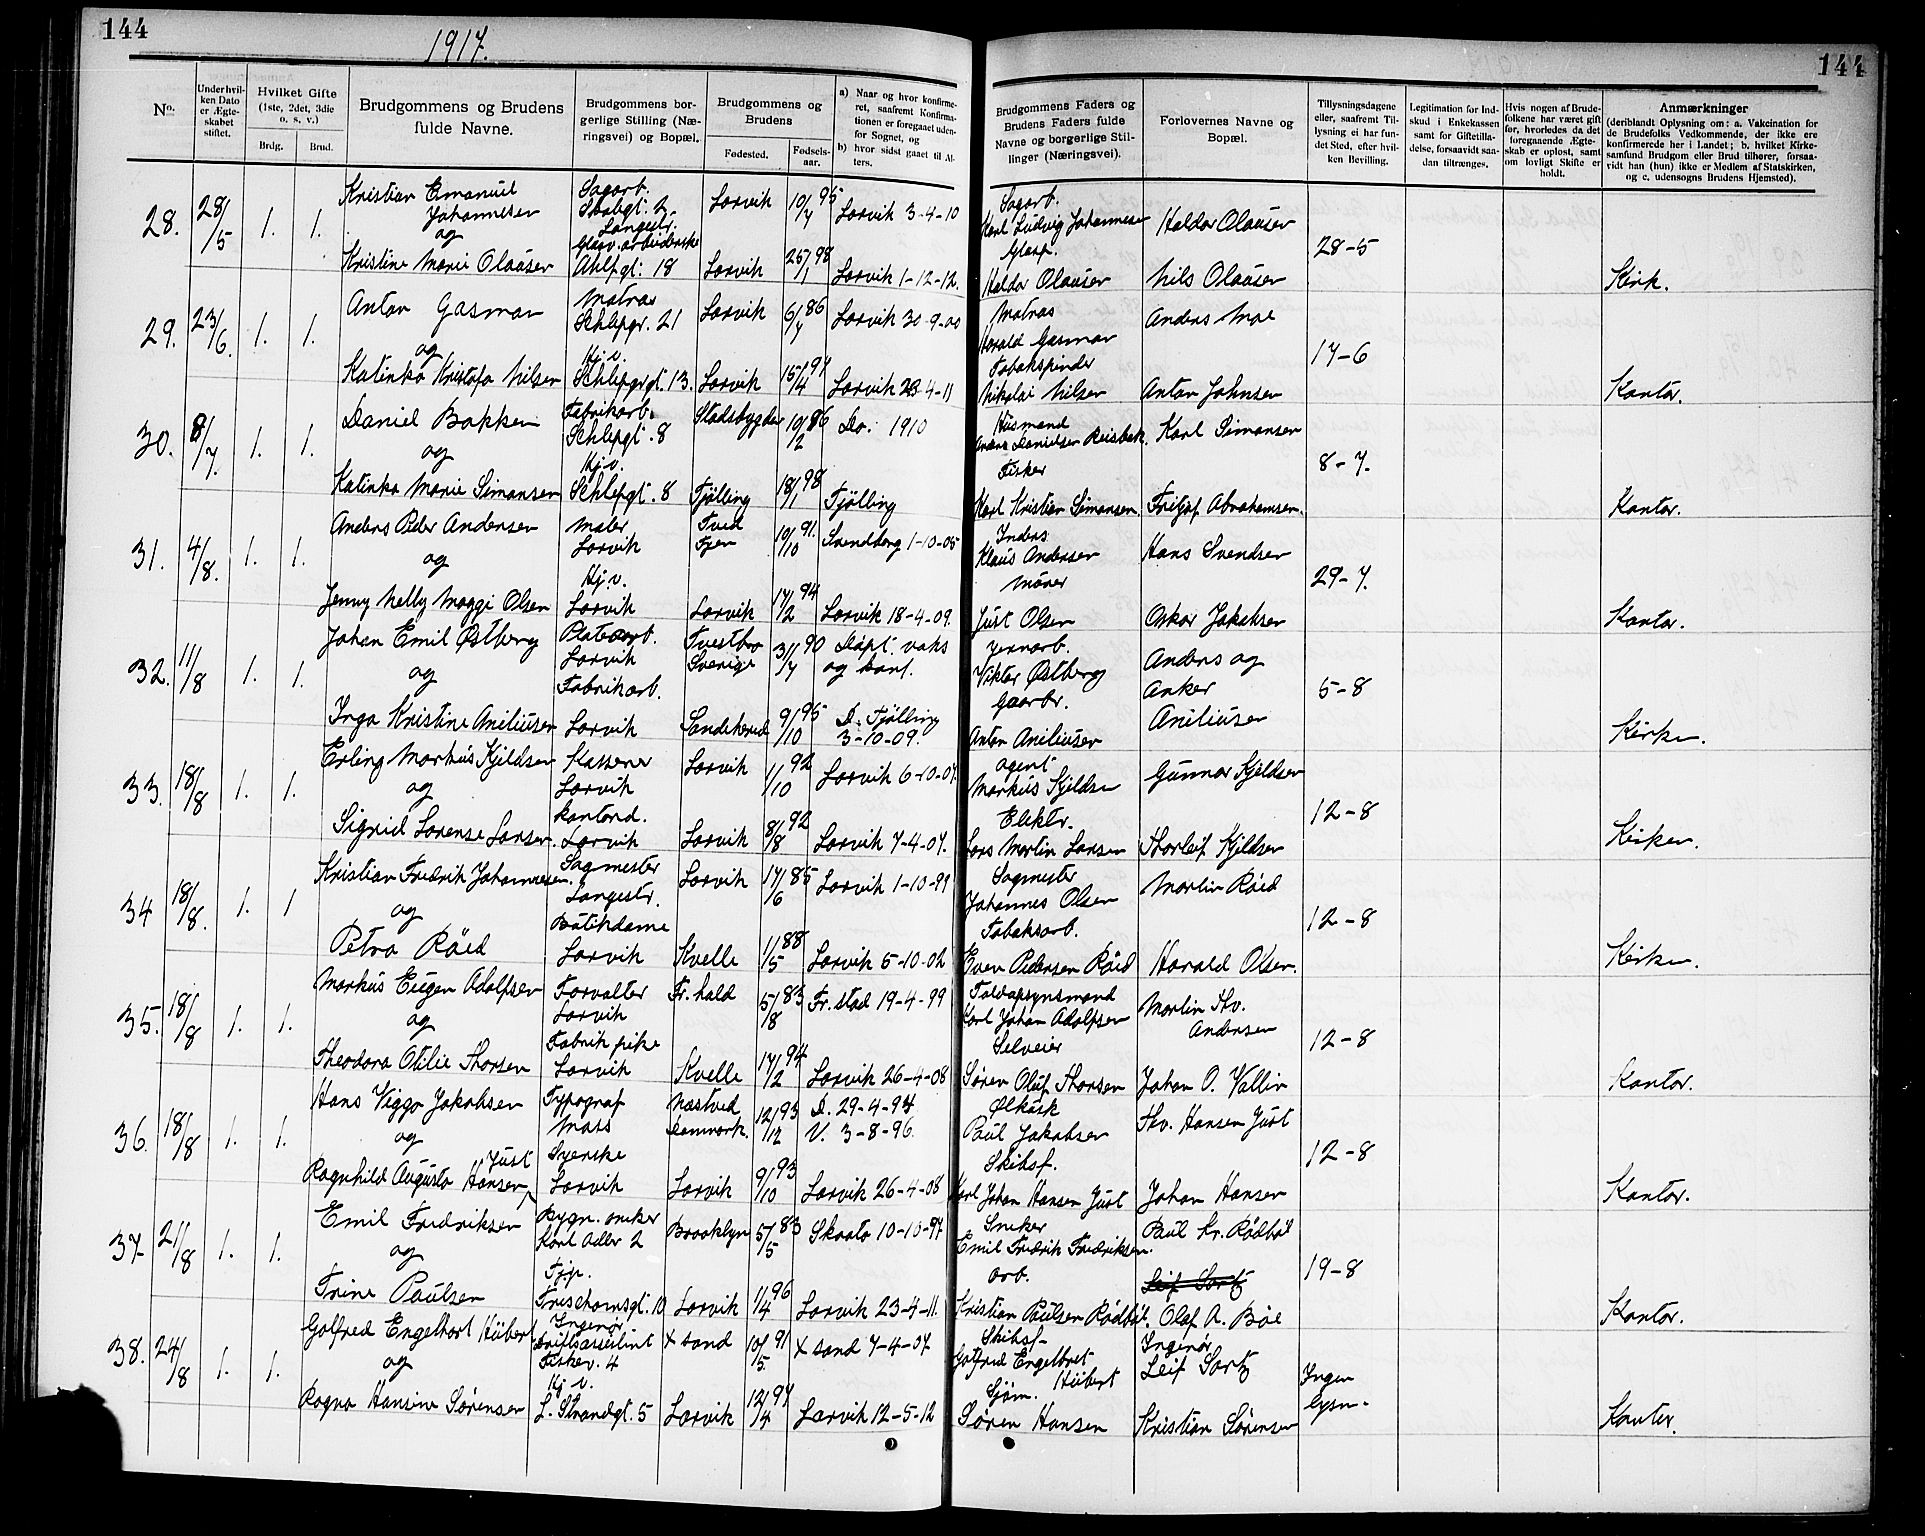 144
1917.
144
No.
Under hvilken Dato er Ægteskabet stiftet.
Hvilket Gifte (1ste, 2det, 3die o. s. v.)
Brdg.
Brud.
Brudgommens og Brudens fulde Navne.
Brudgommens borgerlige Stilling (Næringsvei) og Bopæl.
Brudgommens og Brudens
Fødested.
Fødselsaar.
a) Naar og hvor konfirmeret, saafremt Konfirmationen er foregaaet udenfor Sognet, og
b) hvor sidst gaaet til Alters.
Brudgommens Faders og Brudens Faders fulde Navne og borgerlige Stillinger (Næringsvei).
Forlovernes Navne og Bopæl.
Tillysningsdagene eller, saafremt Tillysning ei har fundet Sted, efter hvilken Bevilling.
Legitimation for Indskud i Enkekassen samt for Giftetilladelse, forsaavidt saadan tiltrænges.
Hvis nogen af Brudefolkene har været gift før, hvorledes da det foregaaende Ægteskab er opløst, samt om lovligt Skifte er holdt.
Anmærkninger
(deriblandt Oplysning om: a. Vakcination for de Brudefolks Vedkommende, der ikke ere konfirmerede her i Landet; b. hvilket Kirkesamfund Brudgom eller Brud tilhører, forsaavidt han (hun) ikke er Medlem af Statskirken, og c. udensogns Brudens Hjemsted).
28. 28/5 1. 1. Kristian Emanuel Johannesen Sagarb. Langestr. Larvik 10/7 95 Larvik 3-4-10 Sagarb. Karl Ludvig Johannesen Haldor Olausen 28-5
og
Kristine Marie Olausen Glasv. arbeiderske Ahlfgt. 18 Larvik 25/1 98 Larvik 1-12-12. Glasp. Haldor Olausen Nils Olausen Kirk.
29. 23/6. 1. 1. Anton Gasman Matros Schlepgr. 21 Larvik 6/7 86 Larvik 30-9-00 Matros Harald Gasman Anders Moe 17-6
og
Katinka Kristofa Nilsen Hj. v. Schlepgrgt. 13. Larvik 15/4 97 Larvik 23-4-11 Tobakspinder Nikolai Nilsen Anton Johnsen Kontor.
30. 8/7. 1. 1. Daniel Bakken Fabrikarb. Schlepgt. 8 Stadsbygden 10/2 86 Do. 1910 Husmand Anders Danielsen Reisbak. Karl Simonsen 8-7.
og
Katinka Marie Simonsen Hj. v. Schlepgt. 8 Tjølling 18/1 98 Tjølling Fisker Karl Kristian Simonsen. Fritjof Abrahamsen. Kontor.
31. 4/8. 1. 1. Anders Peder Andersen Maler Larvik Tved Fyen 10/10 91. Svendborg 1-10-05 Inders Klaus Andersen Hans Svendsen 29-7.
og
Jenny Nelly Maggi Olsen Hj. v. Larvik Larvik 17/2 94 Larvik 18-4-09. Mürer Just Olsen Oskar Jakobsen Kontor.
32. 11/8 1. 1. Johan Emil Østberg Platearb. Larvik Tvestbro Sverige 3/7 90 Døpt. vaks og konf. Jernarb. Viktor Østberg Anders og Anker Aniliusen 5-8
og
Inga Kristine Aniliusen Fabrikarb. Larvik Sandeherred 9/10 95 D. Tjølling 3-10-09. Gaarbr. Anton Aniliusen Kirken.
33. 18/8 1. 1. Erling Markus Kjeldsen Kasserer Larvik Larvik 1/10 92 Larvik 6-10-07. Agent Markus Kjeldsen Gunnar Kjeldsen 12-8
og
Sigrid Lorense Larsen. Kontord. Larvik Larvik 8/8 92 Larvik 7-4-07. Elektr. Lars Martin Larsen Thorleif Kjeldsen Kirken.
34 18/8. 1. 1 Kristian Fredrik Johannesen. Sagmester Langestr. Larvik 17/6 85 Larvik 1-10-99 Sagmester Johannes Olsen Martin Røed 12-8
og
Petra Røed Butikdame Larvik Kvelle 1/5 88 Larvik 5-10-02 Tobaksarb. Even Pedersen Røed Harald Olsen. Kirken.
35. 18/8 1. 1. Markus Eugen Adolfsen Forvalter Larvik Fr. hald 5/8 83 Fr. stad 19-4-99 Toldopsynsmand Karl Johan Adolfsen Martin Thv. Andersen 12-8
og
Theodora Otilie Thorsen Fabrik pike Larvik Kvelle 17/2 94 Larvik 26-4-08 Selveier Søren Oluf Thorsen Johan O. Vallin Kontor.
36. 18/8 1. 1. Hans Viggo Jakobsen Typograf Moss Næstved Danmark. 12/12 93 D. 29-4-94 V. 3-8-96. Ølkusk Paul Jakobsen Thv. Hansen Just 12-8
og
Ragnhild Augusta Hansen Just Syerske Larvik Larvik 9/10 93 Larvik 26-4-08 Skibsf. Karl Johan Hansen Just Johan Hansen Kontor.
37 21/8 1. 1. Emil Fredriksen Bygn. sneker Karl Adler 2 Brooklyn 5/5 83 Skaato 10-10-97 Sneker Emil Fredrik Fredriksen. Paul Kr. Rødbøl 19-8
og
Trine Paulsen Tjp. Frischornsgt. 10 Larvik 1/4 96 Larvik 23-4-11. Arb. Kristian Paulsen Rødbøl. Leif Sartz Olaf A. Bøe Kontor.
38. 24/8 1. 1. Gotfred Engelbart Hübert Ingeniør Driftsassistent Fiskev. 4 X sand 10/5. 91 X sand 7-4-07 Skibsf. Gotfred Engelbret Hübert Ingeniør Leif Sartz Ingen lysn.
og
Ragna Hansine Sørensen Hj. v. L. Strandgt. 5 Larvik 12/4 97 Larvik 12-5-12 Sjøm. Søren Hansen Kristian Sørensen Kontor.